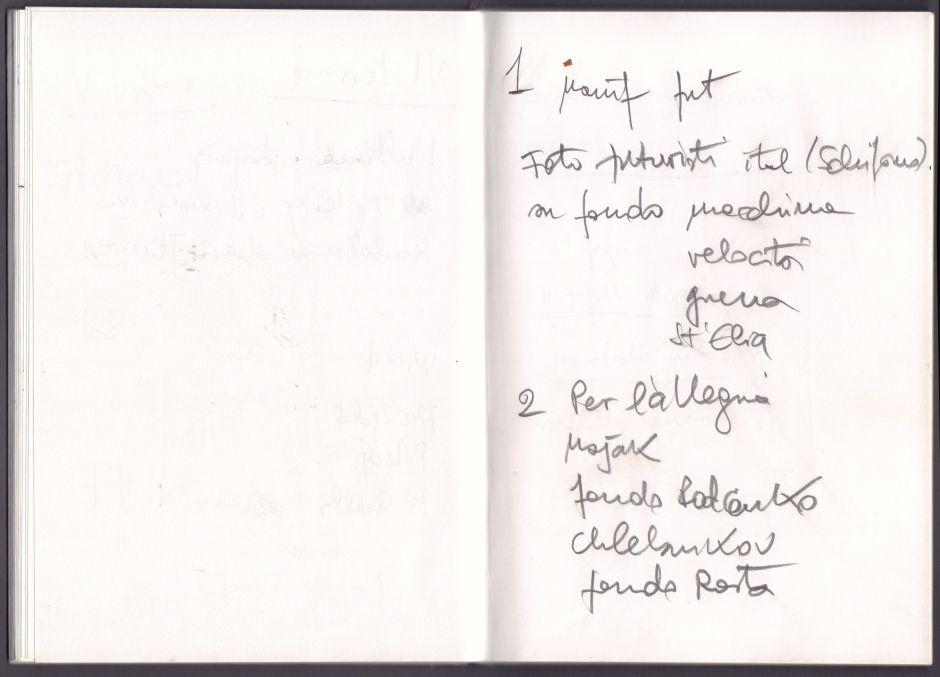 1 Manif fut
Foto futuristi ital (Schifano).
su fondo macchina
velocità
guerra
St'Elia
2 Per l'allegria
Majak
fondo Rodcenko
Chlebnikov
fondo Rosta